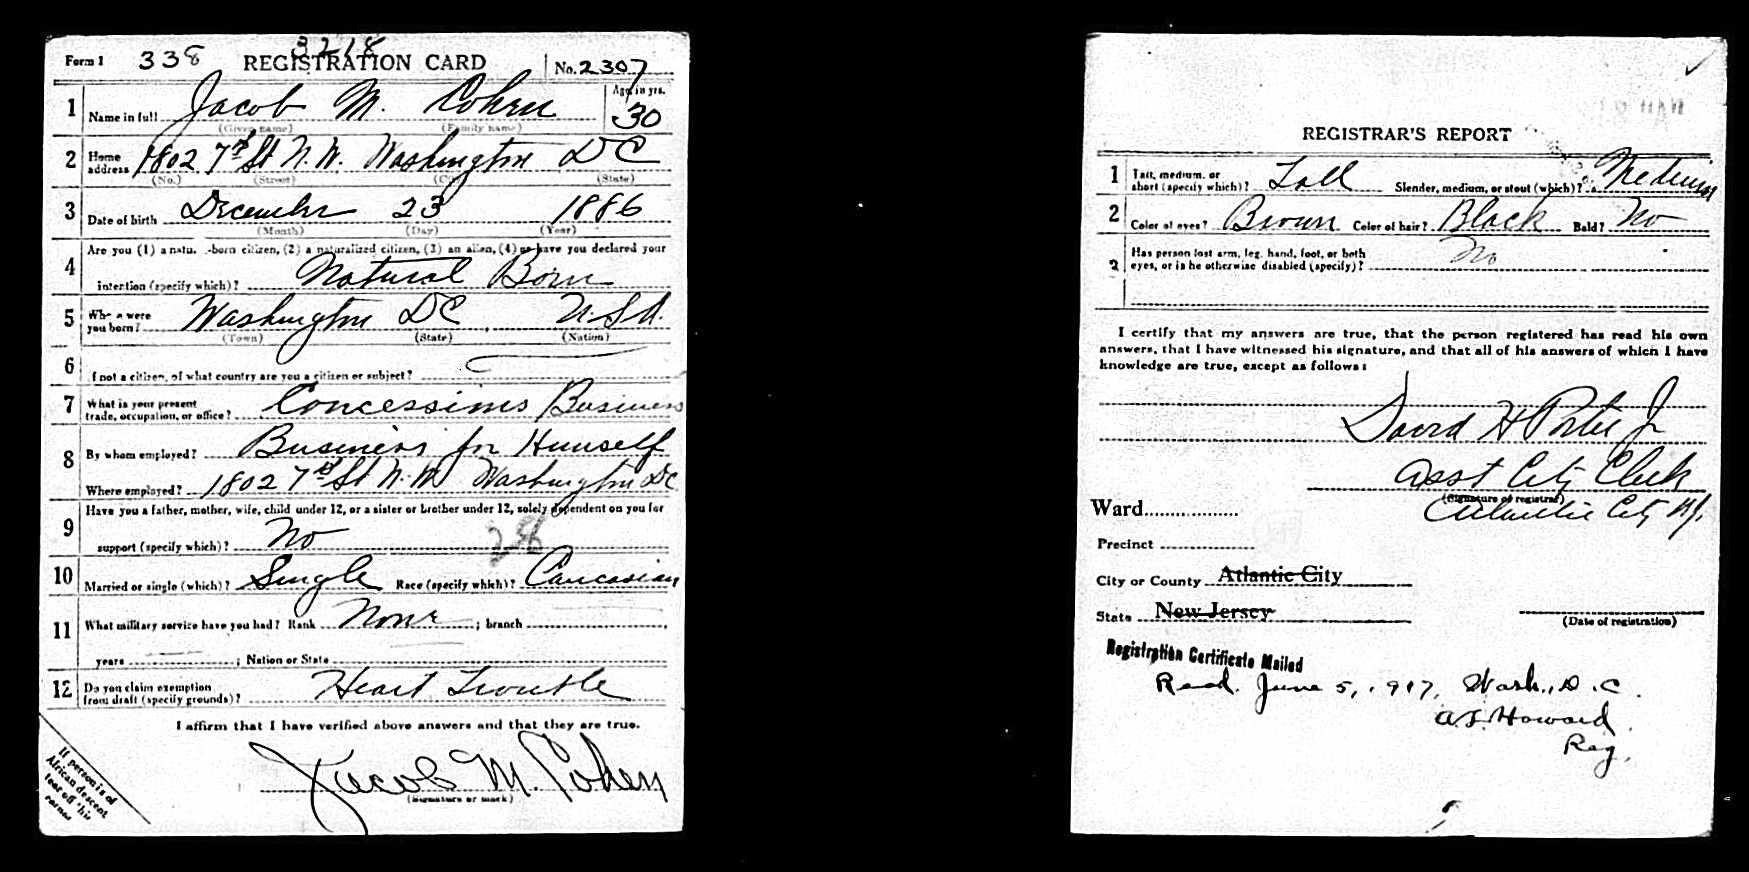 3218
Form 1 338 REGISTRATION CARD No. 2307
1 Name in full Jacob M. Cohen Age, in yrs. 30
(Given name) (Family name)
2 Home address 1802 7th St N.W. Washington DC
(No.) (Street) (City) (State)
3 Date of birth December 23 1886
(Month) (Day) (Year)
4 Are you (1) a natu. -born citizen, (2) a naturalized citizen, (3) an alien, (4) or have you declared your
intention (specify which)? Natural Born
5 Where were you born? Washington DC, U.S.A.
(Town) (State) (Nation)
6 If not a citizen, of what country are you a citizen or subject?
7 What is your present trade, occupation, or office? Concessions Business
8 By whom employed? Business for Himself
Where employed? 1802 7th St N.W. Washington DC
9 Have you a father, mother, wife, child under 12, or a sister or brother under 12, solely dependent on you for
support (specify which)? No
10 Married or single (which)? Single Race (specify which)? Caucasian
11 What military service have you had? Rank None ; branch
years ; Nation or State
12 Do you claim exemption from draft (specify grounds)? Heart Trouble
I affirm that I have verified above answers and that they are true.
Jacob M. Cohen
(Signature or mark)
If person is of
African descent
tear off this
corner
REGISTRAR'S REPORT
1 Tall, medium, or short (specify which)? Tall Slender, medium, or stout (which)? Medium
2 Color of eyes? Brown Color of hair? Black Bald? No
3 Has person lost arm, leg, hand, foot, or both eyes, or is he otherwise disabled (specify)? No
I certify that my answers are true, that the person registered has read his own
answers, that I have witnessed his signature, and that all of his answers of which I have
knowledge are true, except as follows:
David H Porter Jr
Asst City Clerk
(Signature of registrar)
Ward Atlantic City N.J.
Precinct
City or County Atlantic City
State New Jersey
(Date of registration)
Registration Certificate Mailed
Recd. June 5, 1917, Wash., D.C.
A.S. Howard
Reg.